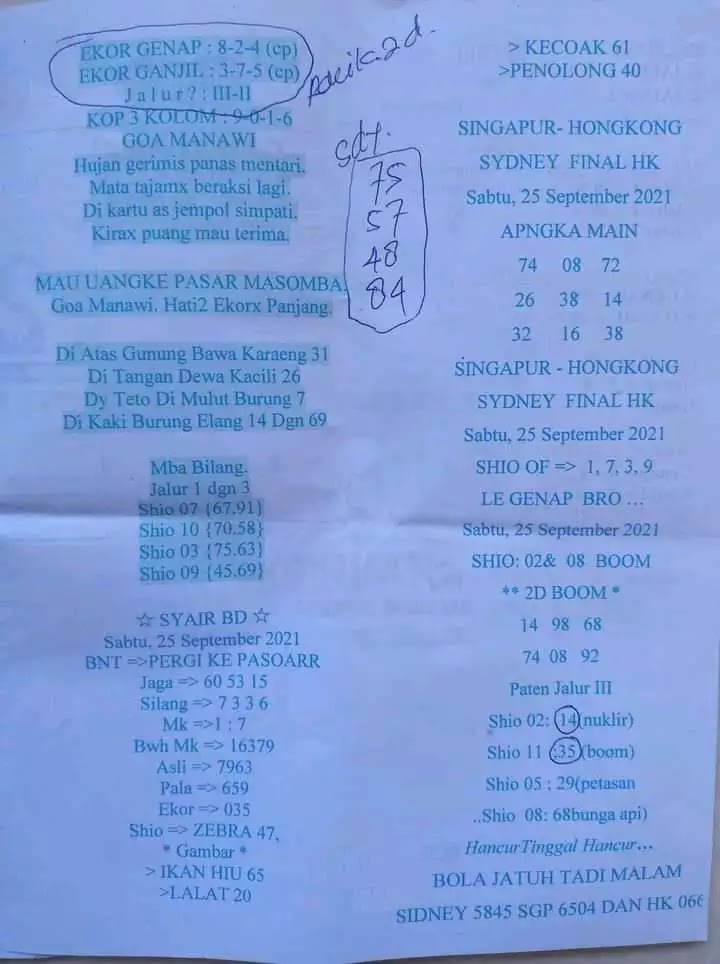 EKOR GENAP : 8-2-4 (cp)
EKOR GANJIL : 3-7-5 (cp)
Jalur? : III-II
KOP 3 KOLOM : 9-0-1-6
GOA MANAWI
Hujan gerimis panas mentari.
Mata tajamx beraksi lagi.
Di kartu as jempol simpati.
Kirax puang mau terima.
2d.
sdy.
75
57
48
84
MAU UANGKE PASAR MASOMBA
Goa Manawi. Hati2 Ekorx Panjang.
Di Atas Gunung Bawa Karaeng 31
Di Tangan Dewa Kacili 26
Dy Teto Di Mulut Burung 7
Di Kaki Burung Elang 14 Dgn 69
Mba Bilang.
Jalur 1 dgn 3
Shio 07 {67.91}
Shio 10 {70.58}
Shio 03 {75.63}
Shio 09 {45.69}
☆ SYAIR BD ☆
Sabtu, 25 September 2021
BNT =>PERGI KE PASOARR
Jaga => 60 53 15
Silang => 7 3 3 6
Mk =>1 : 7
Bwh Mk => 16379
Asli => 7963
Pala => 659
Ekor => 035
Shio => ZEBRA 47,
* Gambar *
> IKAN HIU 65
>LALAT 20
> KECOAK 61
>PENOLONG 40
SINGAPUR- HONGKONG
SYDNEY FINAL HK
Sabtu, 25 September 2021
APNGKA MAIN
74 08 72
26 38 14
32 16 38
SINGAPUR - HONGKONG
SYDNEY FINAL HK
Sabtu, 25 September 2021
SHIO OF => 1, 7, 3, 9
LE GENAP BRO ...
Sabtu, 25 September 2021
SHIO: 02& 08 BOOM
** 2D BOOM *
14 98 68
74 08 92
Paten Jalur III
Shio 02: 14(nuklir)
Shio 11 :35(boom)
Shio 05 : 29(petasan
..Shio 08: 68bunga api)
HancurTinggal Hancur...
BOLA JATUH TADI MALAM
SIDNEY 5845 SGP 6504 DAN HK 066